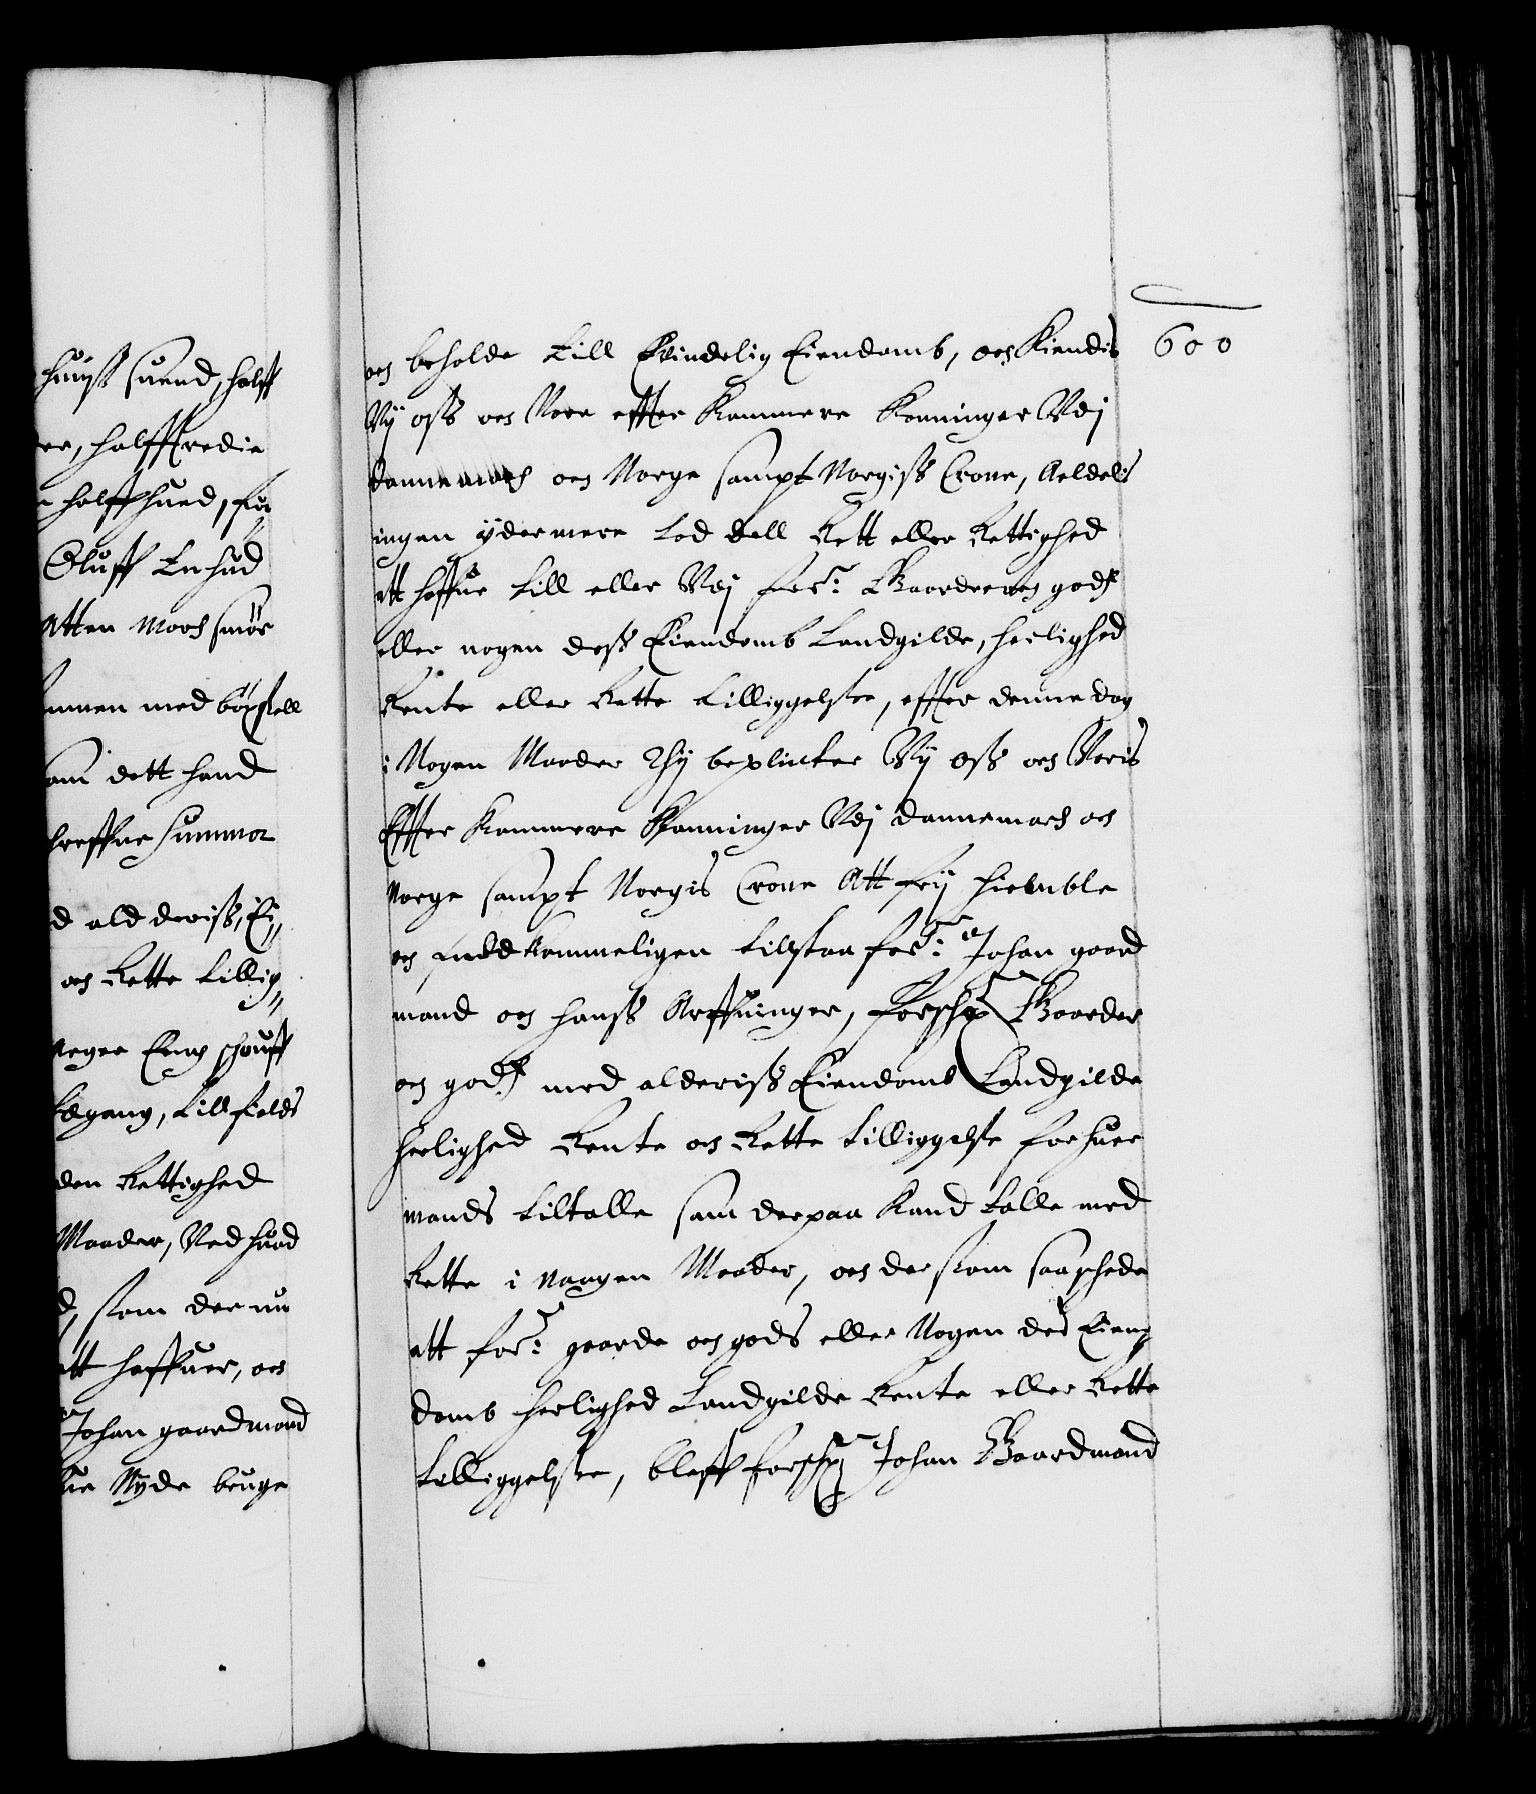 huiß suend, halff
er, halfftredie
halff hued, for
Oluff En hud
Atten march smør
med böxsell
dett hand
sum̄or
d ald deriß, Ei„
och Rette tillig„
schouff
fægang, till fields
den Rettighed
Maader, Ved huad
d, som der nu
att haffuer, och
Johan gaardmand
Nyde bruge
600
och beholde till Evindelig Eiendomb, och Kiendis
Vÿ oß och Vore effter Kommere Konninger Udj
dannemarch och Norge sampt Norgiß Crone, Aldelis
ingen ÿdermere Lod dell Rett eller Rettighed
att haffue till eller Udj forne: Gaarder och gods
eller nogen deß Eiendomb Landgilde, herlighed
Rente eller Rette tilliggelse, effter denne dag
i Nogen Maader Thÿ beplicter Vÿ oß och Voris
Effter Kommere Konninger Udj dannemarch och
Norge sampt Norgis Crone Att frÿ hiemble
och fuldkommeligen tillstaa forne: Johan gaard
mand och hanß Arffuinger, forschne Gaarder
och gods med alderiß Eiendomb Landgilde
herlighed Rente och Rette tilliggelse for huer
mands tiltalle som derpaa Kand talle med
Rette i naagen Maader, och der som saa schede
att forne: gaarde och gods eller Nogen des Eien„
domb herlighed Landgilde Rente eller Rette
tilliggelse, bleff forschne Johan Gaardmand